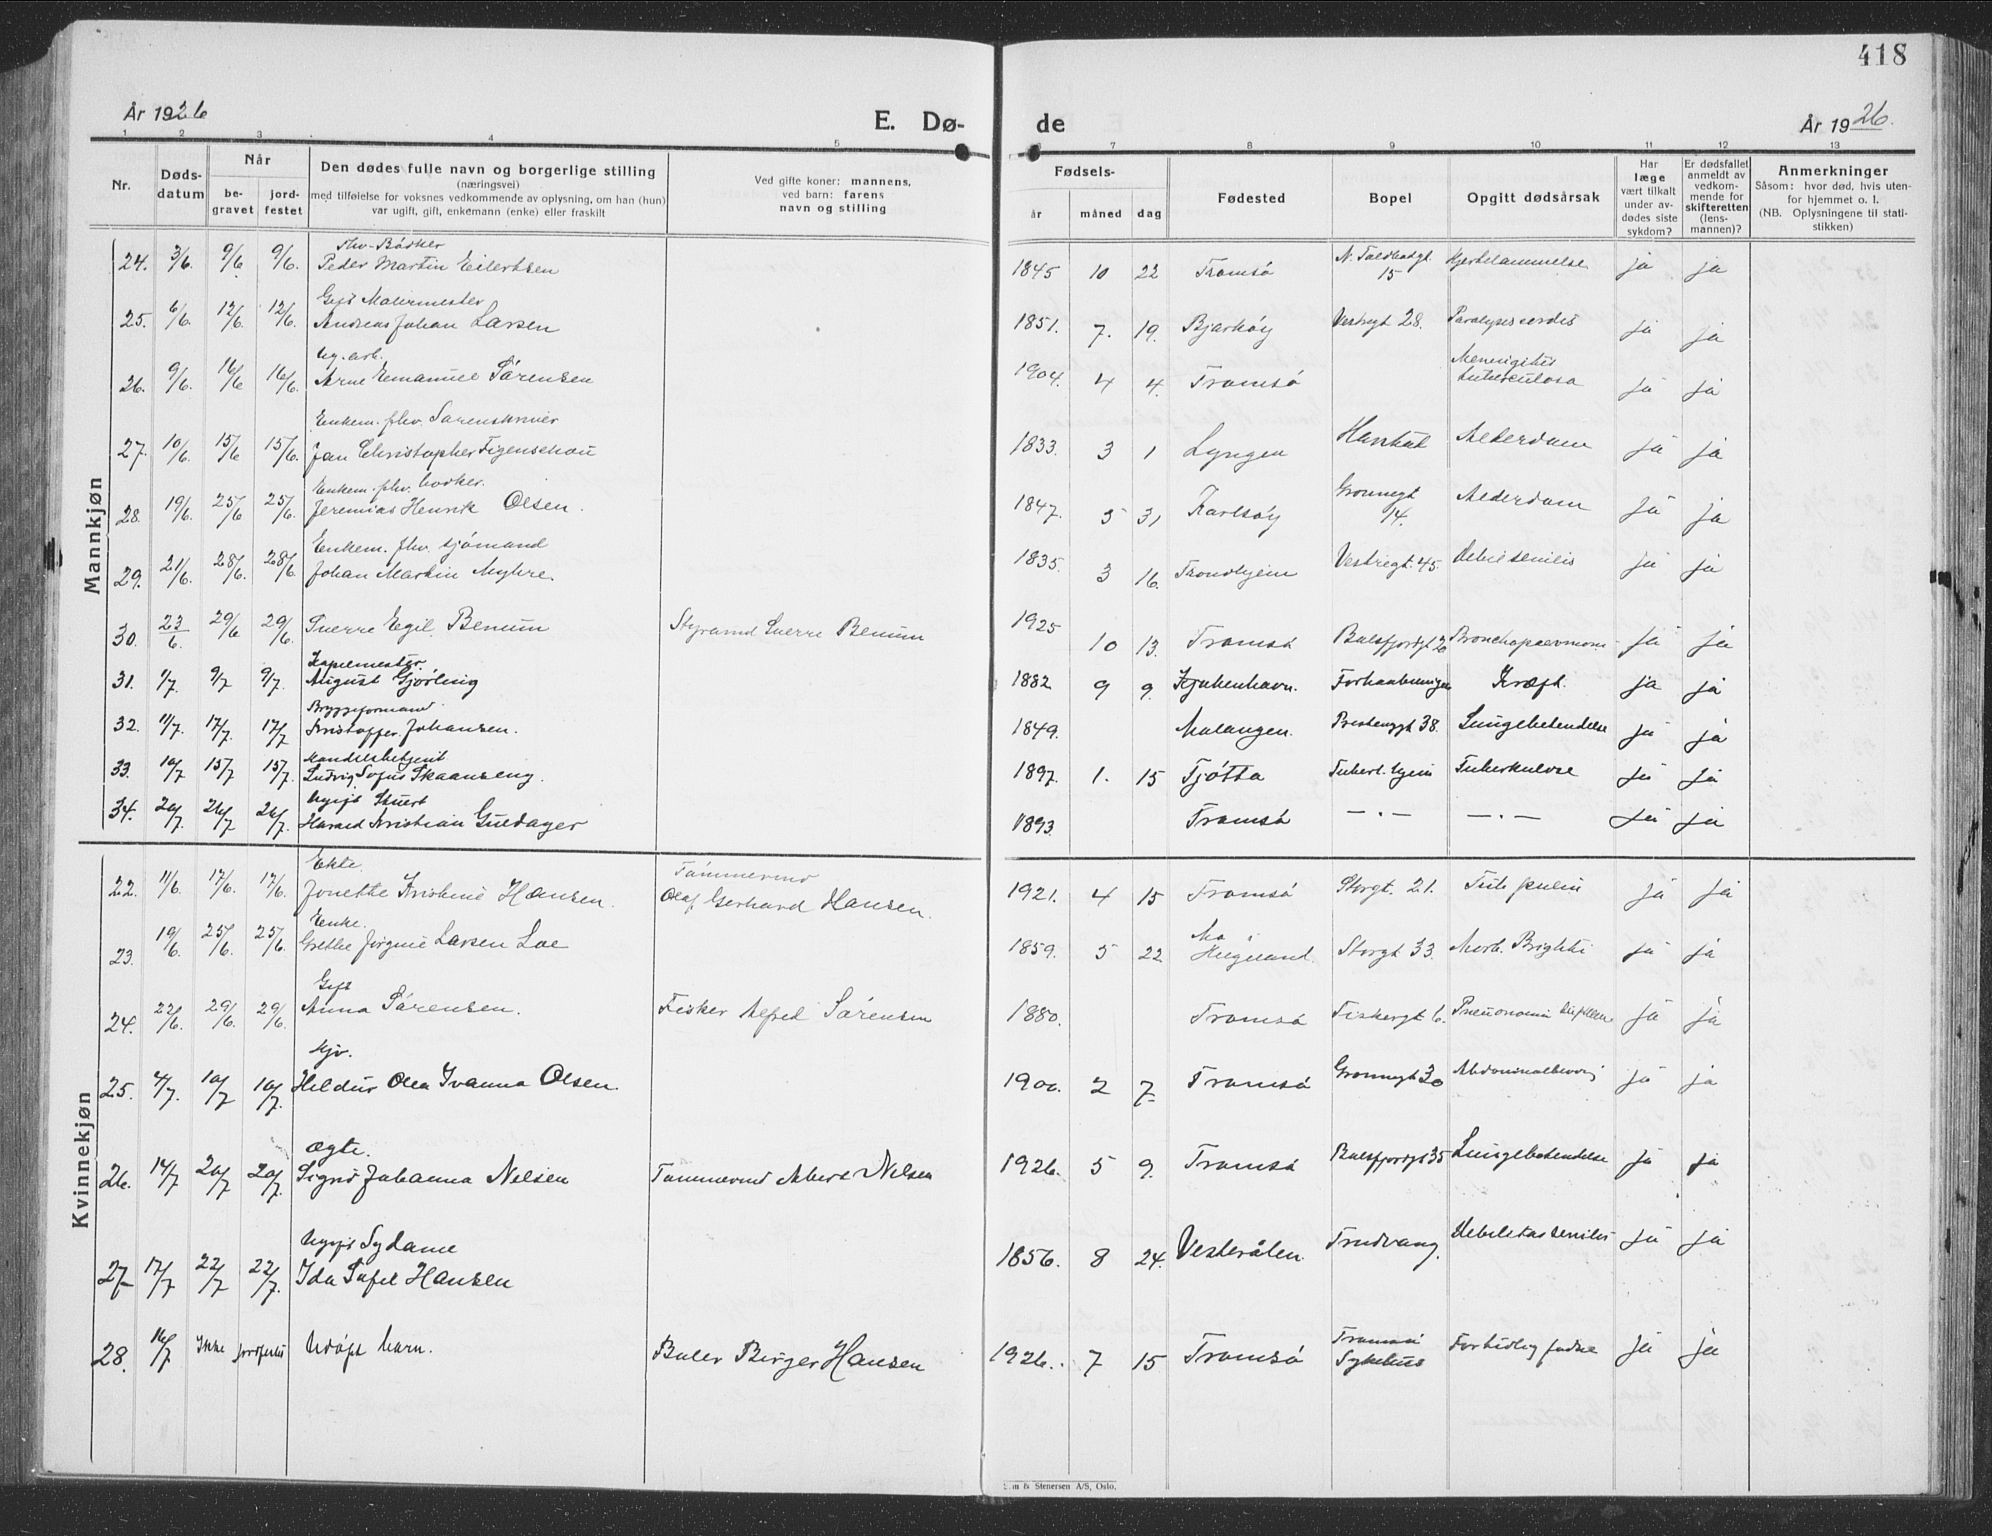 418
År 1926
E. Dø-
de
År 1926.
1 2 3 4 5 6 7 8 9 10 11 12 13
Nr.
Døds-
datum
Når
be-
gravet
jord-
festet
Den dødes fulle navn og borgerlige stilling
(næringsvei)
med tilføielse for voksnes vedkommende av oplysning, om han (hun)
var ugift, gift, enkemann (enke) eller fraskilt
Ved gifte koner: mannens,
ved barn: farens
navn og stilling
Fødsels-
år
måned
dag
Fødested
Bopel
Opgitt dødsårsak
Har
læge
vært tilkalt
under av-
dødes siste
sykdom?
Er dødsfallet
anmeldt av
vedkom-
mende for
skifteretten
(lens-
mannen)?
Anmerkninger
Såsom: hvor død, hvis uten-
for hjemmet o. l.
(NB. Oplysningene til stati-
stikken)
Mannkjøn
fhv. Bødker
24. 3/6. 9/6 9/6. Peder Martin Eilertsen 1845 10 22 Tromsø N. Toldbodgt. 15 Hjertelammelse ja ja
Gift Malermester
25. 6/6. 12/6. 12/6. Andreas Johan Larsen 1851. 7. 19. Bjarkøy Vestregt 28. Paralysis cordis ja ja
Ug. arb.
26. 9/6. 16/6 16/6. Arne Emanuel Sørensen 1904. 4 4. Tromsø Meningitis tuberculosa ja ja
Enkem. fhv.
27. 10/6. 15/6 15/6. Jan Christopher Figenschou 1833. 3 1 Lyngen Alderdom ja ja
Enkem. fhv. bødker.
28. 19/6. 25/6 25/6. Jeremias Henrik Olsen. 1847. 5 31 Karlsøy Grønnegt 14. Alderdom ja ja
Enkem. fhv. sjømand
29. 21/6. 28/6. 28/6. Johan Martin Myhre. 1835. 3 16. Trondhjem Vestregt. 45. Debil senilis ja ja
30. 23/6. 29/6 29/6. Sverre Egil Benum Styrmand Sverre Benum 1925 10 13. Tromsø Balsfjordgt Bronchopneumoni ja ja
Kapelmester.
31. 1/7. 9/7 9/7. August Gjørling 1882 9 9. Kjøbenhavn. Forhaabningen Kræft. ja ja
Bryggeformand
32. 11/7. 17/7. 17/7 Kristoffer Johansen. 1849. Malangen. 38. Lungebetendelse ja ja
Handelsbetjent
33. 10/7 15/7 15/7. Ludvig Sofus Skaanseng. 1897. 1. 15 Tjøtta Tuberk. hjem Tuberkulose ja ja
Ugift Stuert
34. 20/7. 26/7 26/7. Harald Kristian Guldager 1893 Tromsø — . — — . — ja ja
Kvinnekjøn
Ekte.
Tømmermd
22. 11/6. 17/6. 17/6. Jonette Kristine Hansen. Olaf Gerhard Hansen. 1921. 4 15 Tromsø Storgt. 21. ja ja
Enke.
23. 19/6. 25/6. 25/6. Grethe Jørgine Larsen Loe 1859. 5 22 Mo i Helgeland. Storgt 33. Morb. Brightii ja ja
Gift
24. 22/6. 29/6. 29/6. Anna Sørensen. Fisker Alfred Sørensen 1880. Tromsø Fiskergt 6. ja ja
25. 4/7. 10/7 10/7. Hildur Olea Ivanna Olsen. 1900. 2 7 Tromsø Grønnegt 30 ja ja
Ægte.
26. 14/7 20/7 20/7. Signe Johanna Nilsen Tømmermd Albert Nilsen 1926. 5 9. Tromsø Balsfjordgt 35 Lungebetendelse ja ja
Ugift Sydame
27 17/7 22/7 22/7. Ida Sofie Hansen 1856. 8 24. Vesterålen. Trudvang. Debilitas senilis ja ja
28. 16/7 Ikke jordfestet Udøpt barn. Birger Hansen 1926. 7 15 Tromsø Tromsø Sykehus For tidlig fødse ja ja
& Stenersen A/S, Oslo.